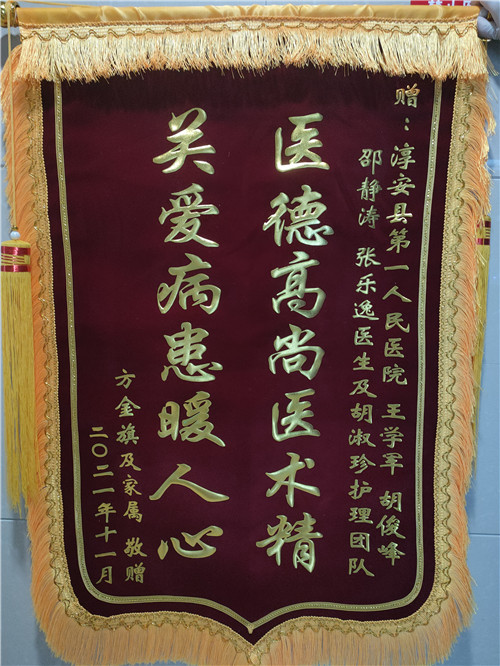 赠：淳安县第一人民医院 王学军 胡俊峰
邵静涛 张乐逸医生及胡淑珍护理团队
医德高尚医术精
关爱病患暖人心
方金旗及家属 敬赠
二〇二一年十一月